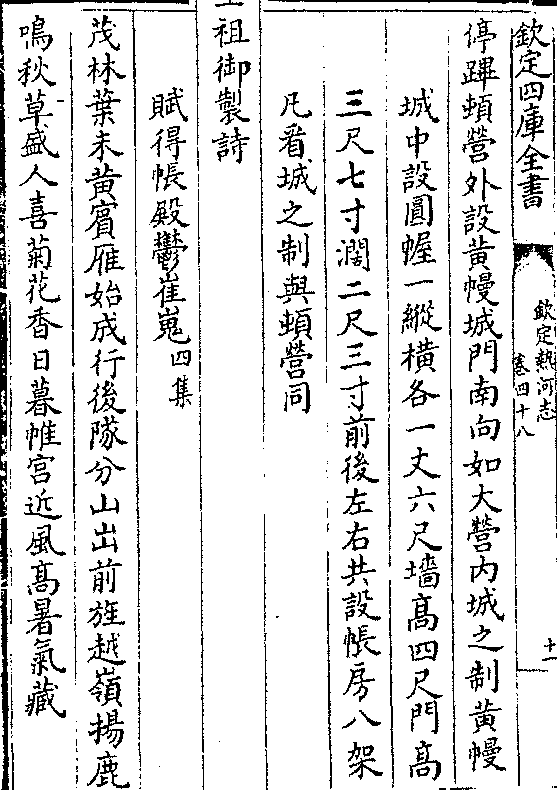 欽定四庫全書
欽定熱河志
卷四十八
十一
停蹕頓營外設黃幔城門南向如大營内城之制黃幔
城中設圓幄一縱橫各一丈六尺墻髙四尺門髙
三尺七寸濶二尺三寸前後左右共設帳房八架
凡看城之制與頓營同
祖御製詩
賦得帳殿鬱崔嵬四集
茂林葉未黃賓雁始成行後隊分山出前旌越嶺揚鹿
鳴秋草盛人喜菊花香日暮帷宫近風髙暑氣藏